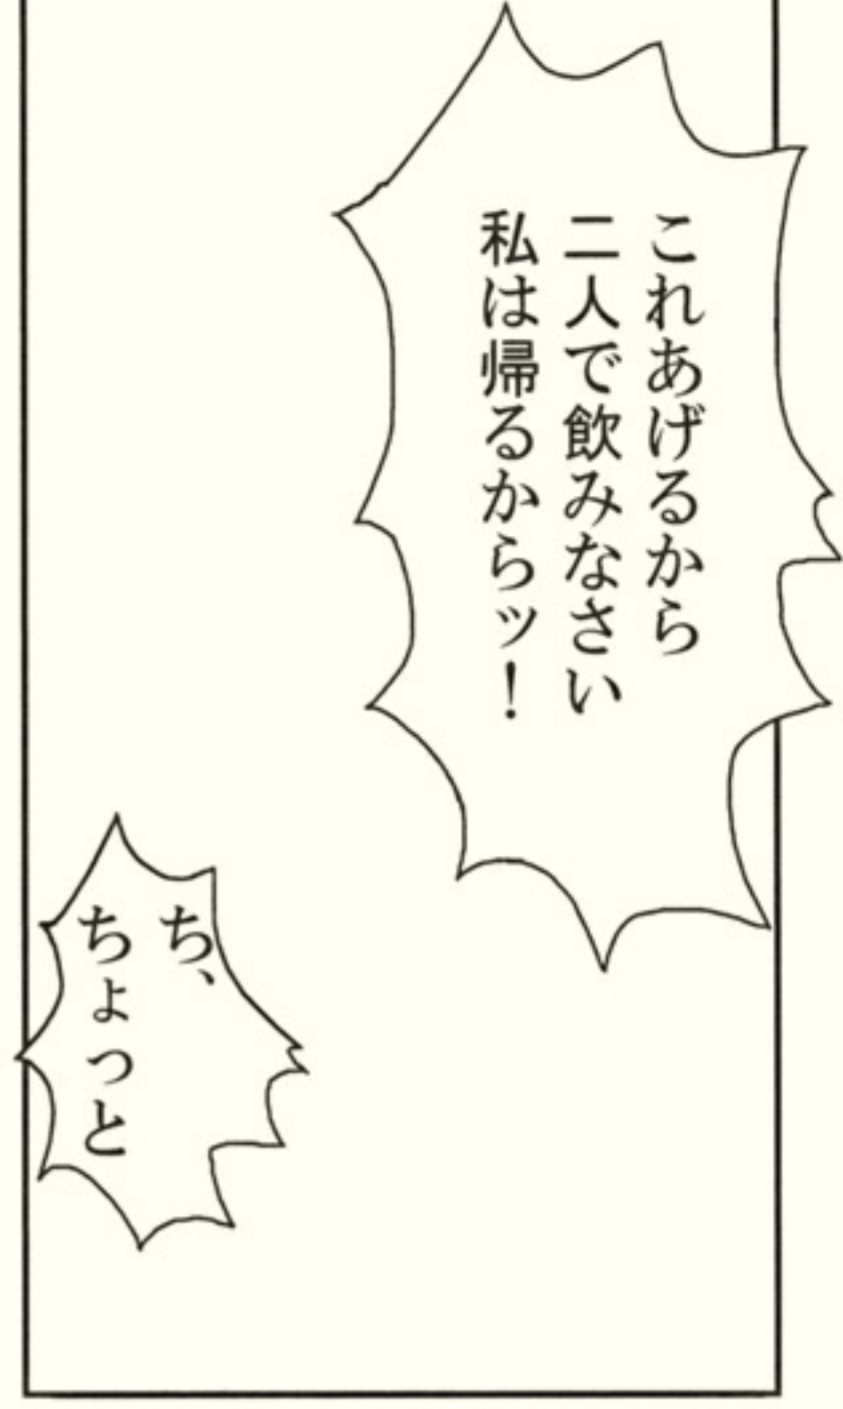 これあげるから
二人で飲みなさい
私は帰るからッ！
ち、
ちょっと